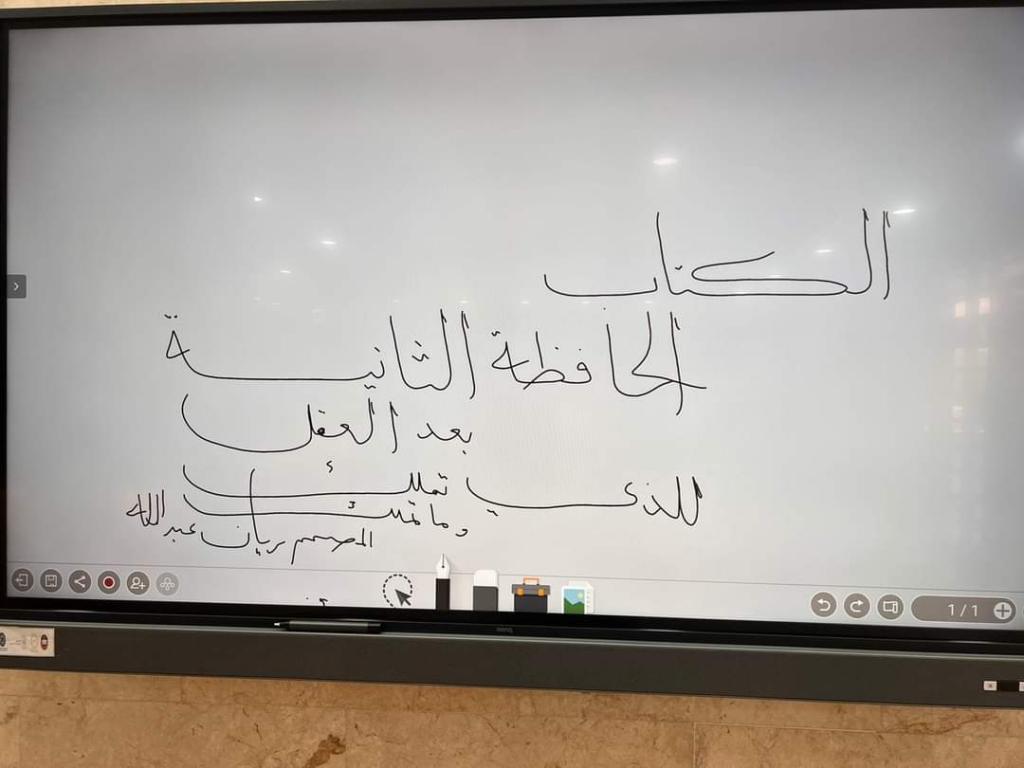 الكتاب
الحافظة الثانية
بعد العقل
للذي تملك
وما تملك
المصمم ريان عبدالله
1/1